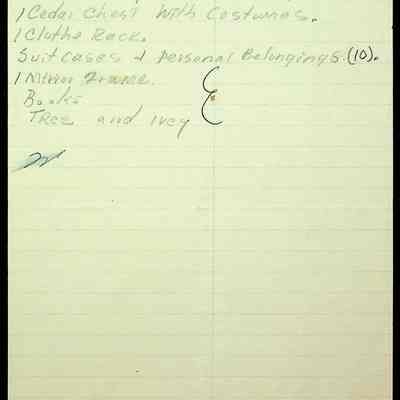 1 Cedar Chest With Costumes.
1 Clothe Rack.
Suitcases & Personal Belongings. (10).
1 Mirror Frame.
Books
Tree and Ivey